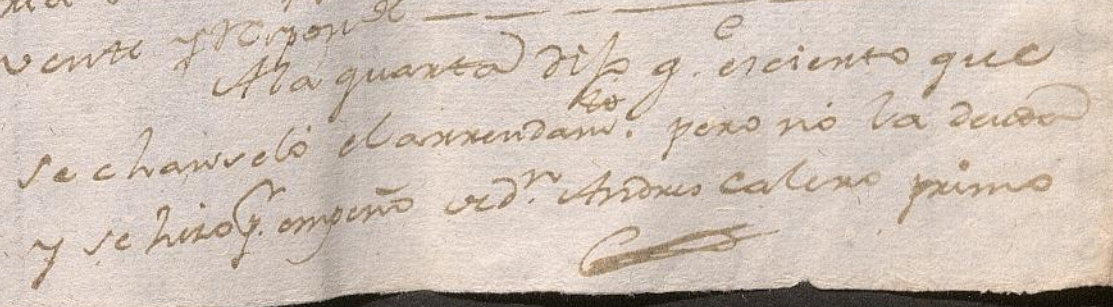 vente y Respon^de
A la quarta dijo q.^e es ciento que
se chanseló el arrendam.^to pero nó la deuda
y se hizo p.^r empeño de d.^n Andres Calero primo